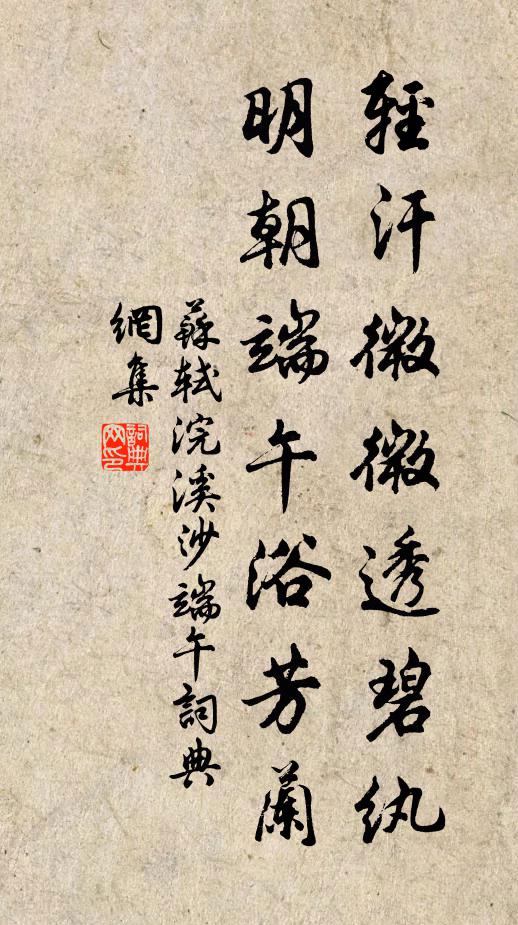 輕汗微微透碧紈
明朝端午浴芳蘭
蘇軾浣溪沙端午詞典
網集
詞典
网印